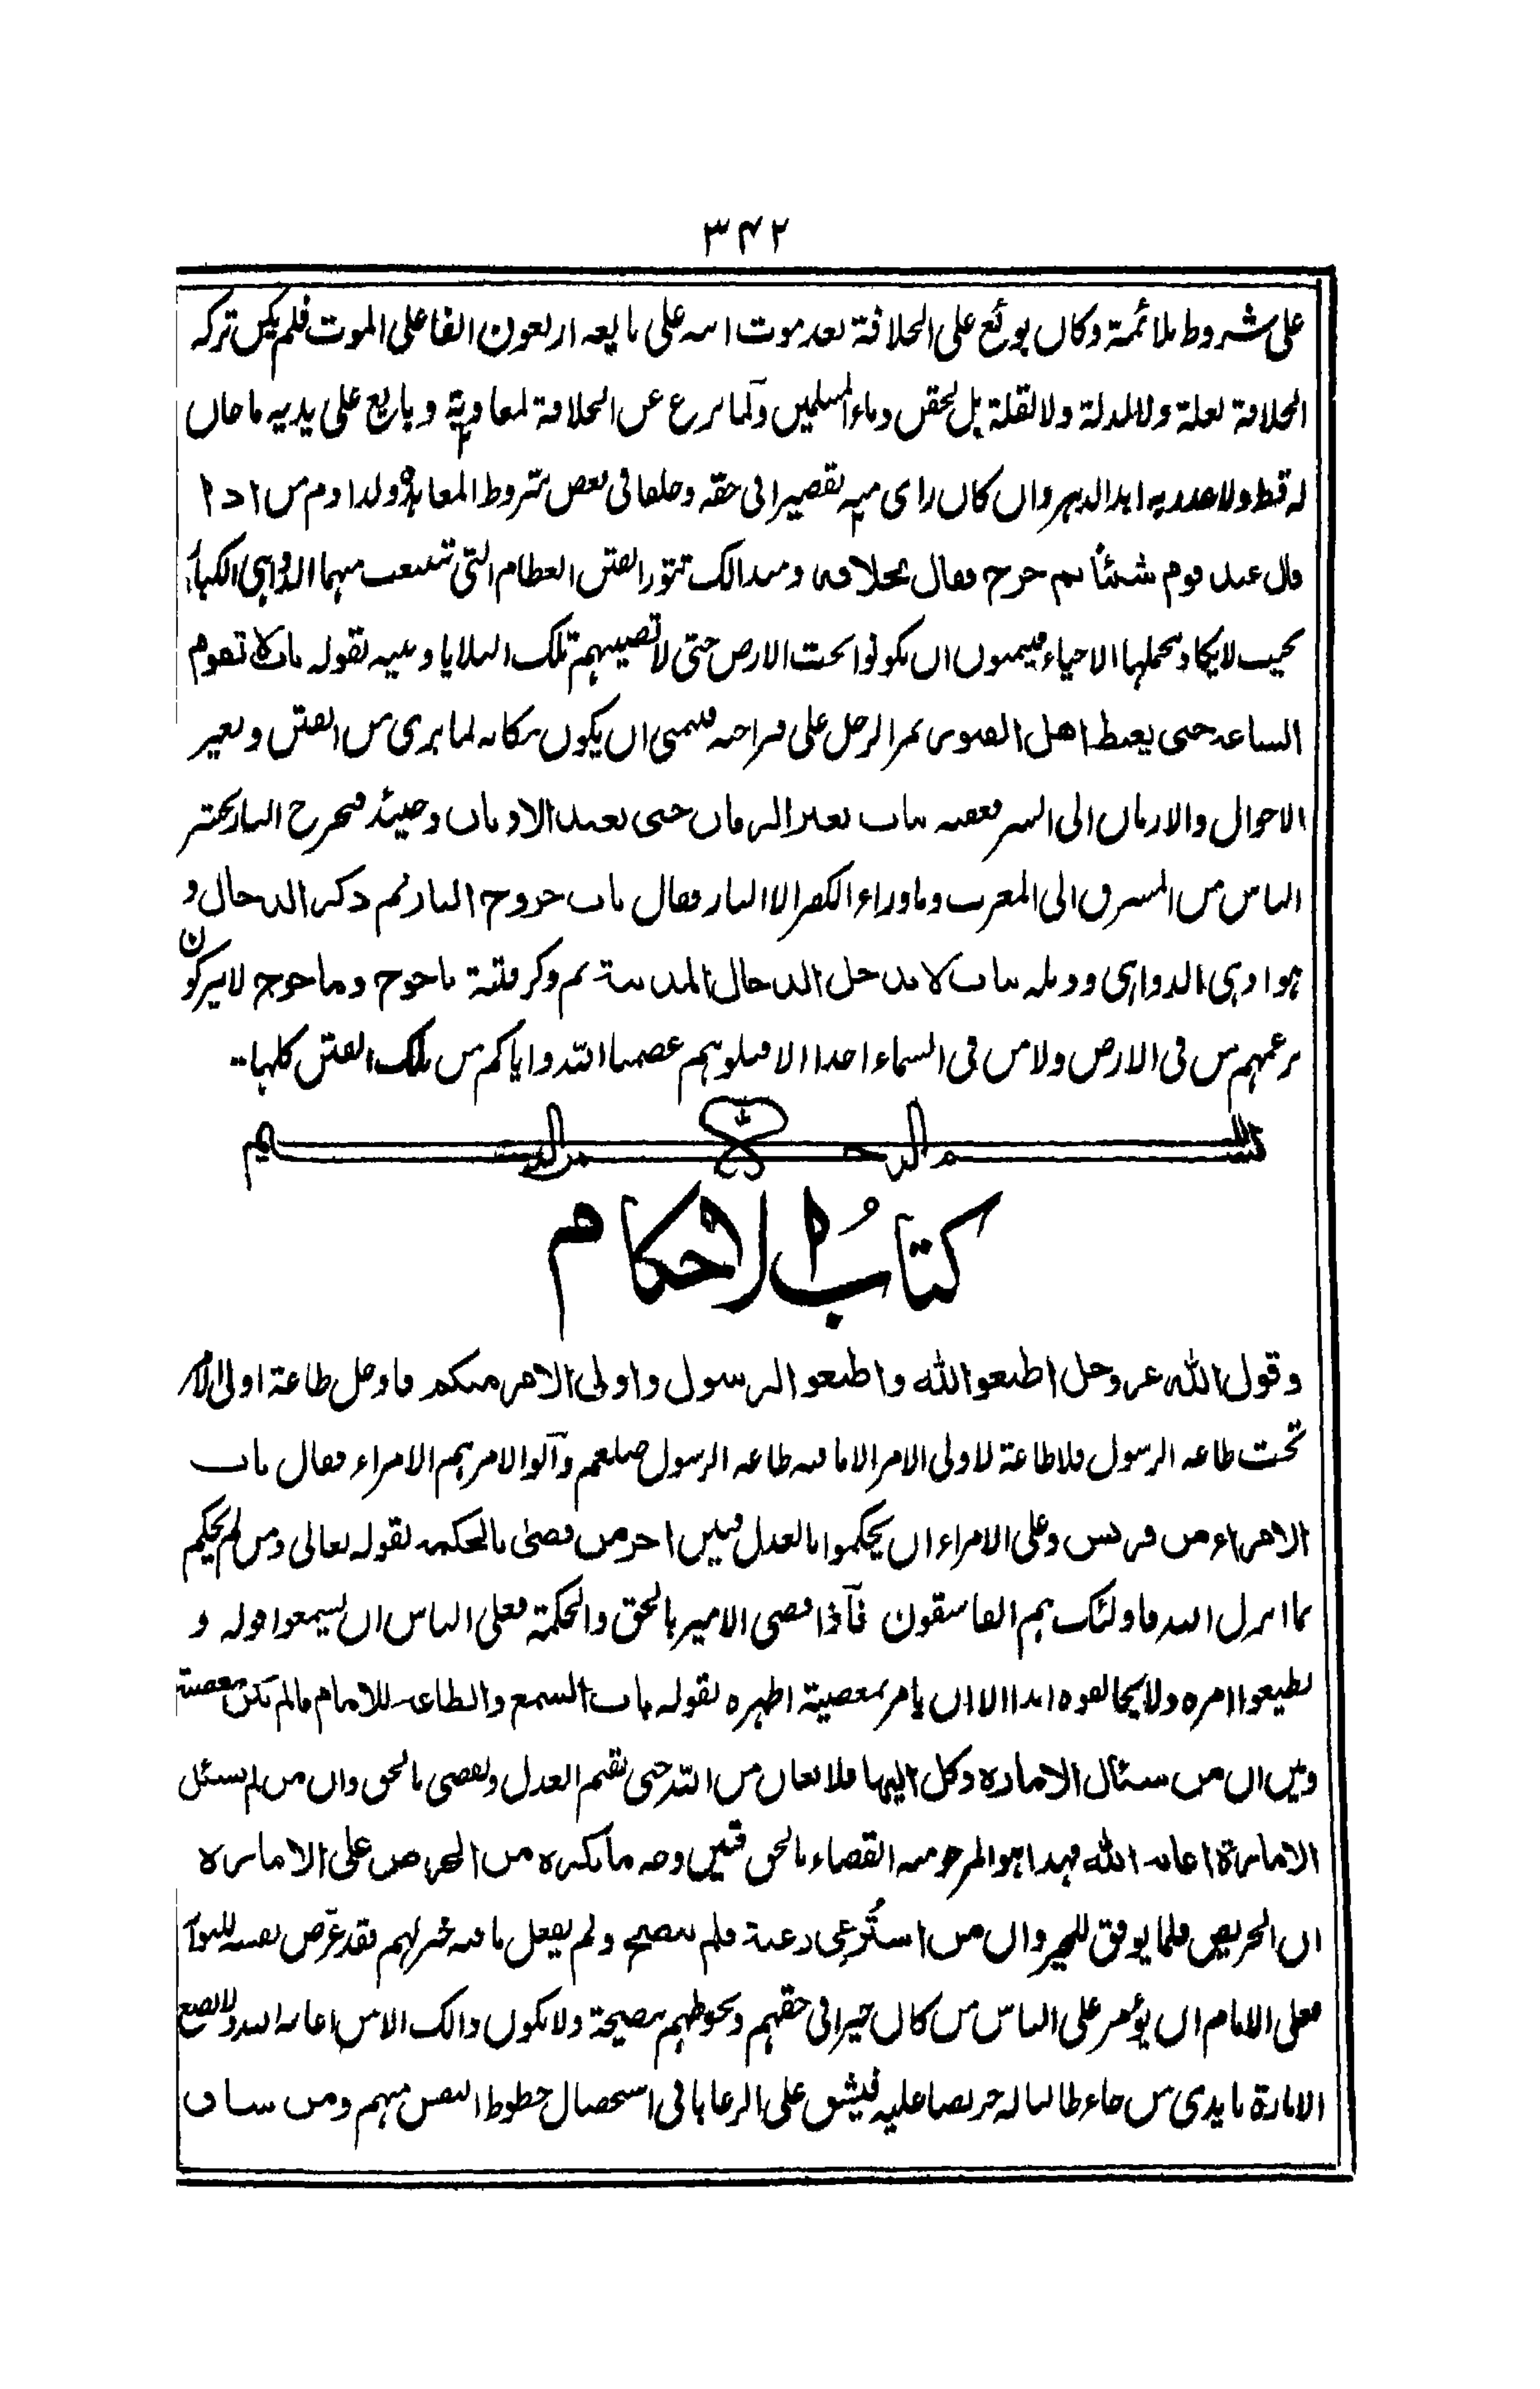 ۳۴۲
على شروط ملائمة وكان بويع على الخلافة بعد موت ابيه على بايعه اربعون الفا على الموت فلم يكن تركه
الخلافة لعلة ولا لمذلة ولا لقلة بل لحقن دماء المسلمين ولما نزع عن الخلافة لمعاوية وبايع على يديه ما خان
له قط ولا غدر به ابد الدهر وان كان راى منه تقصيرا فى حقه وخلفا فى بعض شروط المعاهدة ولذا ذم من اذا
قال عند قوم شيئا ثم خرج فقال بخلافه ومن ذالك تثور الفتن العظام التى تنشعب منها الدواهى الكبار
بحيث لا يكاد يحملها الاحياء فيتمنون ان يكونوا تحت الارض حتى لا تصيبهم تلك البلايا وبينه بقوله باب لا تقوم
الساعة حتى يغبط اهل القبور يمر الرجل على قبر اخيه فيتمنى ان يكون مكانه لما يرى من الفتن وتغير
الاحوال والازمان الى الشر فعقبه بباب تغير الزمان حتى تعبد الاوثان وحينئذ فتخرج النار تحشر
الناس من المشرق الى المغرب وما وراء الكفر الا النار فقال باب خروج النار ثم ذكر الدجال و
هو ادهى الدواهى وذيله بباب لا يدخل الدجال المدينة ثم ذكر فتنة ياجوج وماجوج لا يتركون
بزعمهم من فى الارض ولا من فى السماء احدا الا قتلوهم عصمنا الله واياكم من تلك الفتن كلها
بسم الله الرحمن الرحيم
كتاب الاحكام
وقول الله عز وجل اطيعوا الله واطيعوا الرسول واولى الامر منكم فادخل طاعة اولى الامر
تحت طاعة الرسول فلا طاعة لاولى الامر الا ما فيه طاعة الرسول صلعم وآلوا الامر هم الامراء فقال باب
الامراء من قريش وعلى الامراء ان يحكموا بالعدل فبين اجر من قضى بالحكمة لقوله تعالى ومن لم يحكم
بما انزل الله فاولئك هم الفاسقون فآذا قضى الامير بالحق والحكمة فعلى الناس ان يسمعوا قوله و
يطيعوا امره ولا يخالفوه ابدا الا ان يامر بمعصية اظهره بقوله باب السمع والطاعة للامام مالم تكن معصية
وبين ان من سئال الامارة وكل اليها فلا يعان من الله حتى يقيم العدل ويقضى بالحق وان من لم يسئل
الامارة اعانه الله فهذا هو المرجو منه القضاء بالحق فبين وجه ما يكره من الحرص على الامارة
ان الحريص قلما يوفق للخير وان من استُرعِى رعية فلم ينصح ولم يفعل ما فيه خير لهم فقد عرّض نفسه للنوآ
فعلى الامام ان يؤمر على الناس من كان خيرا فى حقهم ويحوطهم بنصيحة ولا يكون ذالك الا من اعانه الله ولا يضع
الامارة بايدى من جاء طالبا له حريصا عليه فيشق على الرعايا فى استحصال حظوظ النفس منهم ومن شاق